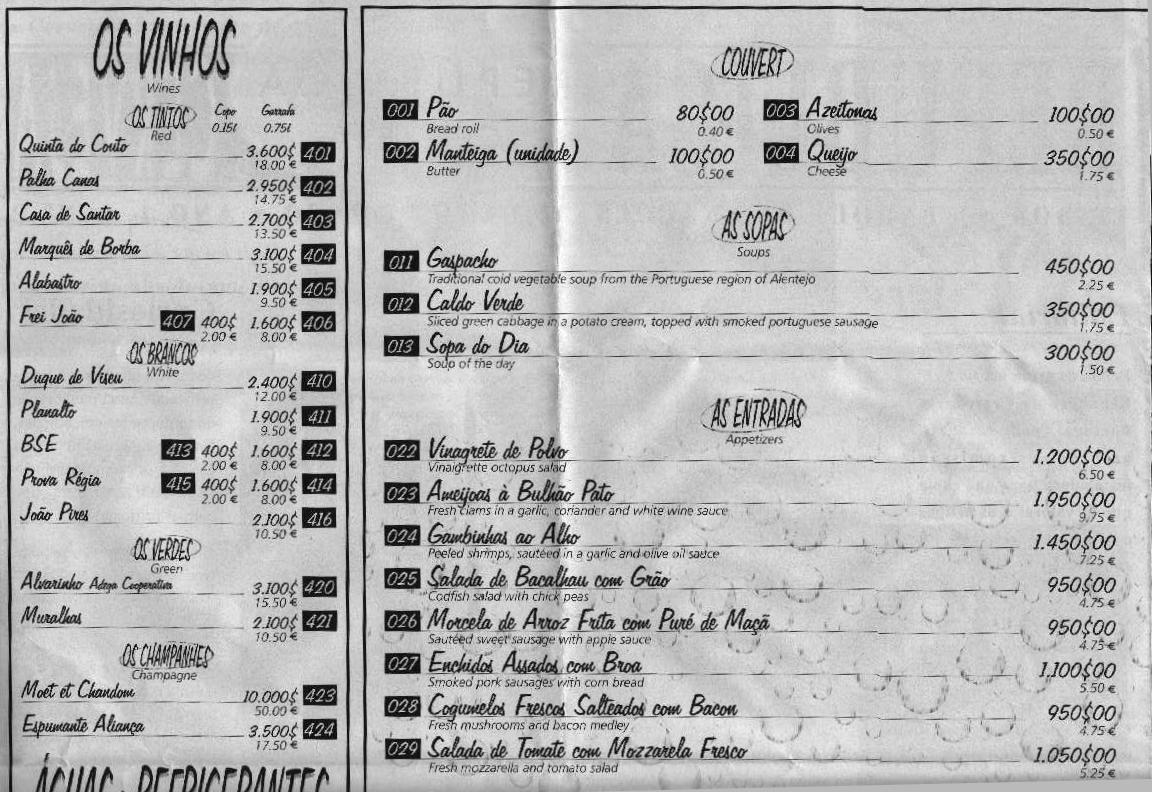 OS VINHOS
Wines
OS TINTOS Copo Garrafa
Red 0.15l 0.75l
Quinta do Couto 3.600$ 401
18.00 €
Palha Canas 2.950$ 402
14.75 €
Casa de Santar 2.700$ 403
13.50 €
Marquês de Borba 3.100$ 404
15.50 €
Alabastro 1.900$ 405
9.50 €
Frei João 407 400$ 1.600$ 406
2.00 € 8.00 €
OS BRANCOS
White
Duque de Viseu 2.400$ 410
12.00 €
Planalto 1.900$ 411
9.50 €
BSE 413 400$ 1.600$ 412
2.00 € 8.00 €
Prova Régia 415 400$ 1.600$ 414
2.00 € 8.00 €
João Pires 2.100$ 416
10.50 €
OS VERDES
Green
Alvarinho Adega Cooperativa 3.100$ 420
15.50 €
Muralhas 2.100$ 421
10.50 €
OS CHAMPANHES
Champagne
Moet et Chandom 10.000$ 423
50.00 €
Espumante Aliança 3.500$ 424
17.50 €
ÁGUAS - REFRIGERANTES
COUVERT
001 Pão 80$00 003 Azeitonas 100$00
Bread roll 0.40 € Olives 0.50 €
002 Manteiga (unidade) 100$00 004 Queijo 350$00
Butter 0.50 € Cheese 1.75 €
AS SOPAS
Soups
011 Gaspacho 450$00
Traditional cold vegetable soup from the Portuguese region of Alentejo 2.25 €
012 Caldo Verde 350$00
Sliced green cabbage in a potato cream, topped with smoked portuguese sausage 1.75 €
013 Sopa do Dia 300$00
Soup of the day 1.50 €
AS ENTRADAS
Appetizers
022 Vinagrete de Polvo 1.200$00
Vinaigrette octopus salad 6.50 €
023 Ameijoas à Bulhão Pato 1.950$00
Fresh clams in a garlic, coriander and white wine sauce 9.75 €
024 Gambinhas ao Alho 1.450$00
Peeled shrimps, sautéed in a garlic and olive oil sauce 7.25 €
025 Salada de Bacalhau com Grão 950$00
Codfish salad with chick peas 4.75 €
026 Morcela de Arroz Frita com Puré de Maçã 950$00
Sautéed sweet sausage with apple sauce 4.75 €
027 Enchidos Assados com Broa 1.100$00
Smoked pork sausages with corn bread 5.50 €
028 Cogumelos Frescos Salteados com Bacon 950$00
Fresh mushrooms and bacon medley 4.75 €
029 Salada de Tomate com Mozzarela Fresco 1.050$00
Fresh mozzarella and tomato salad 5.25 €